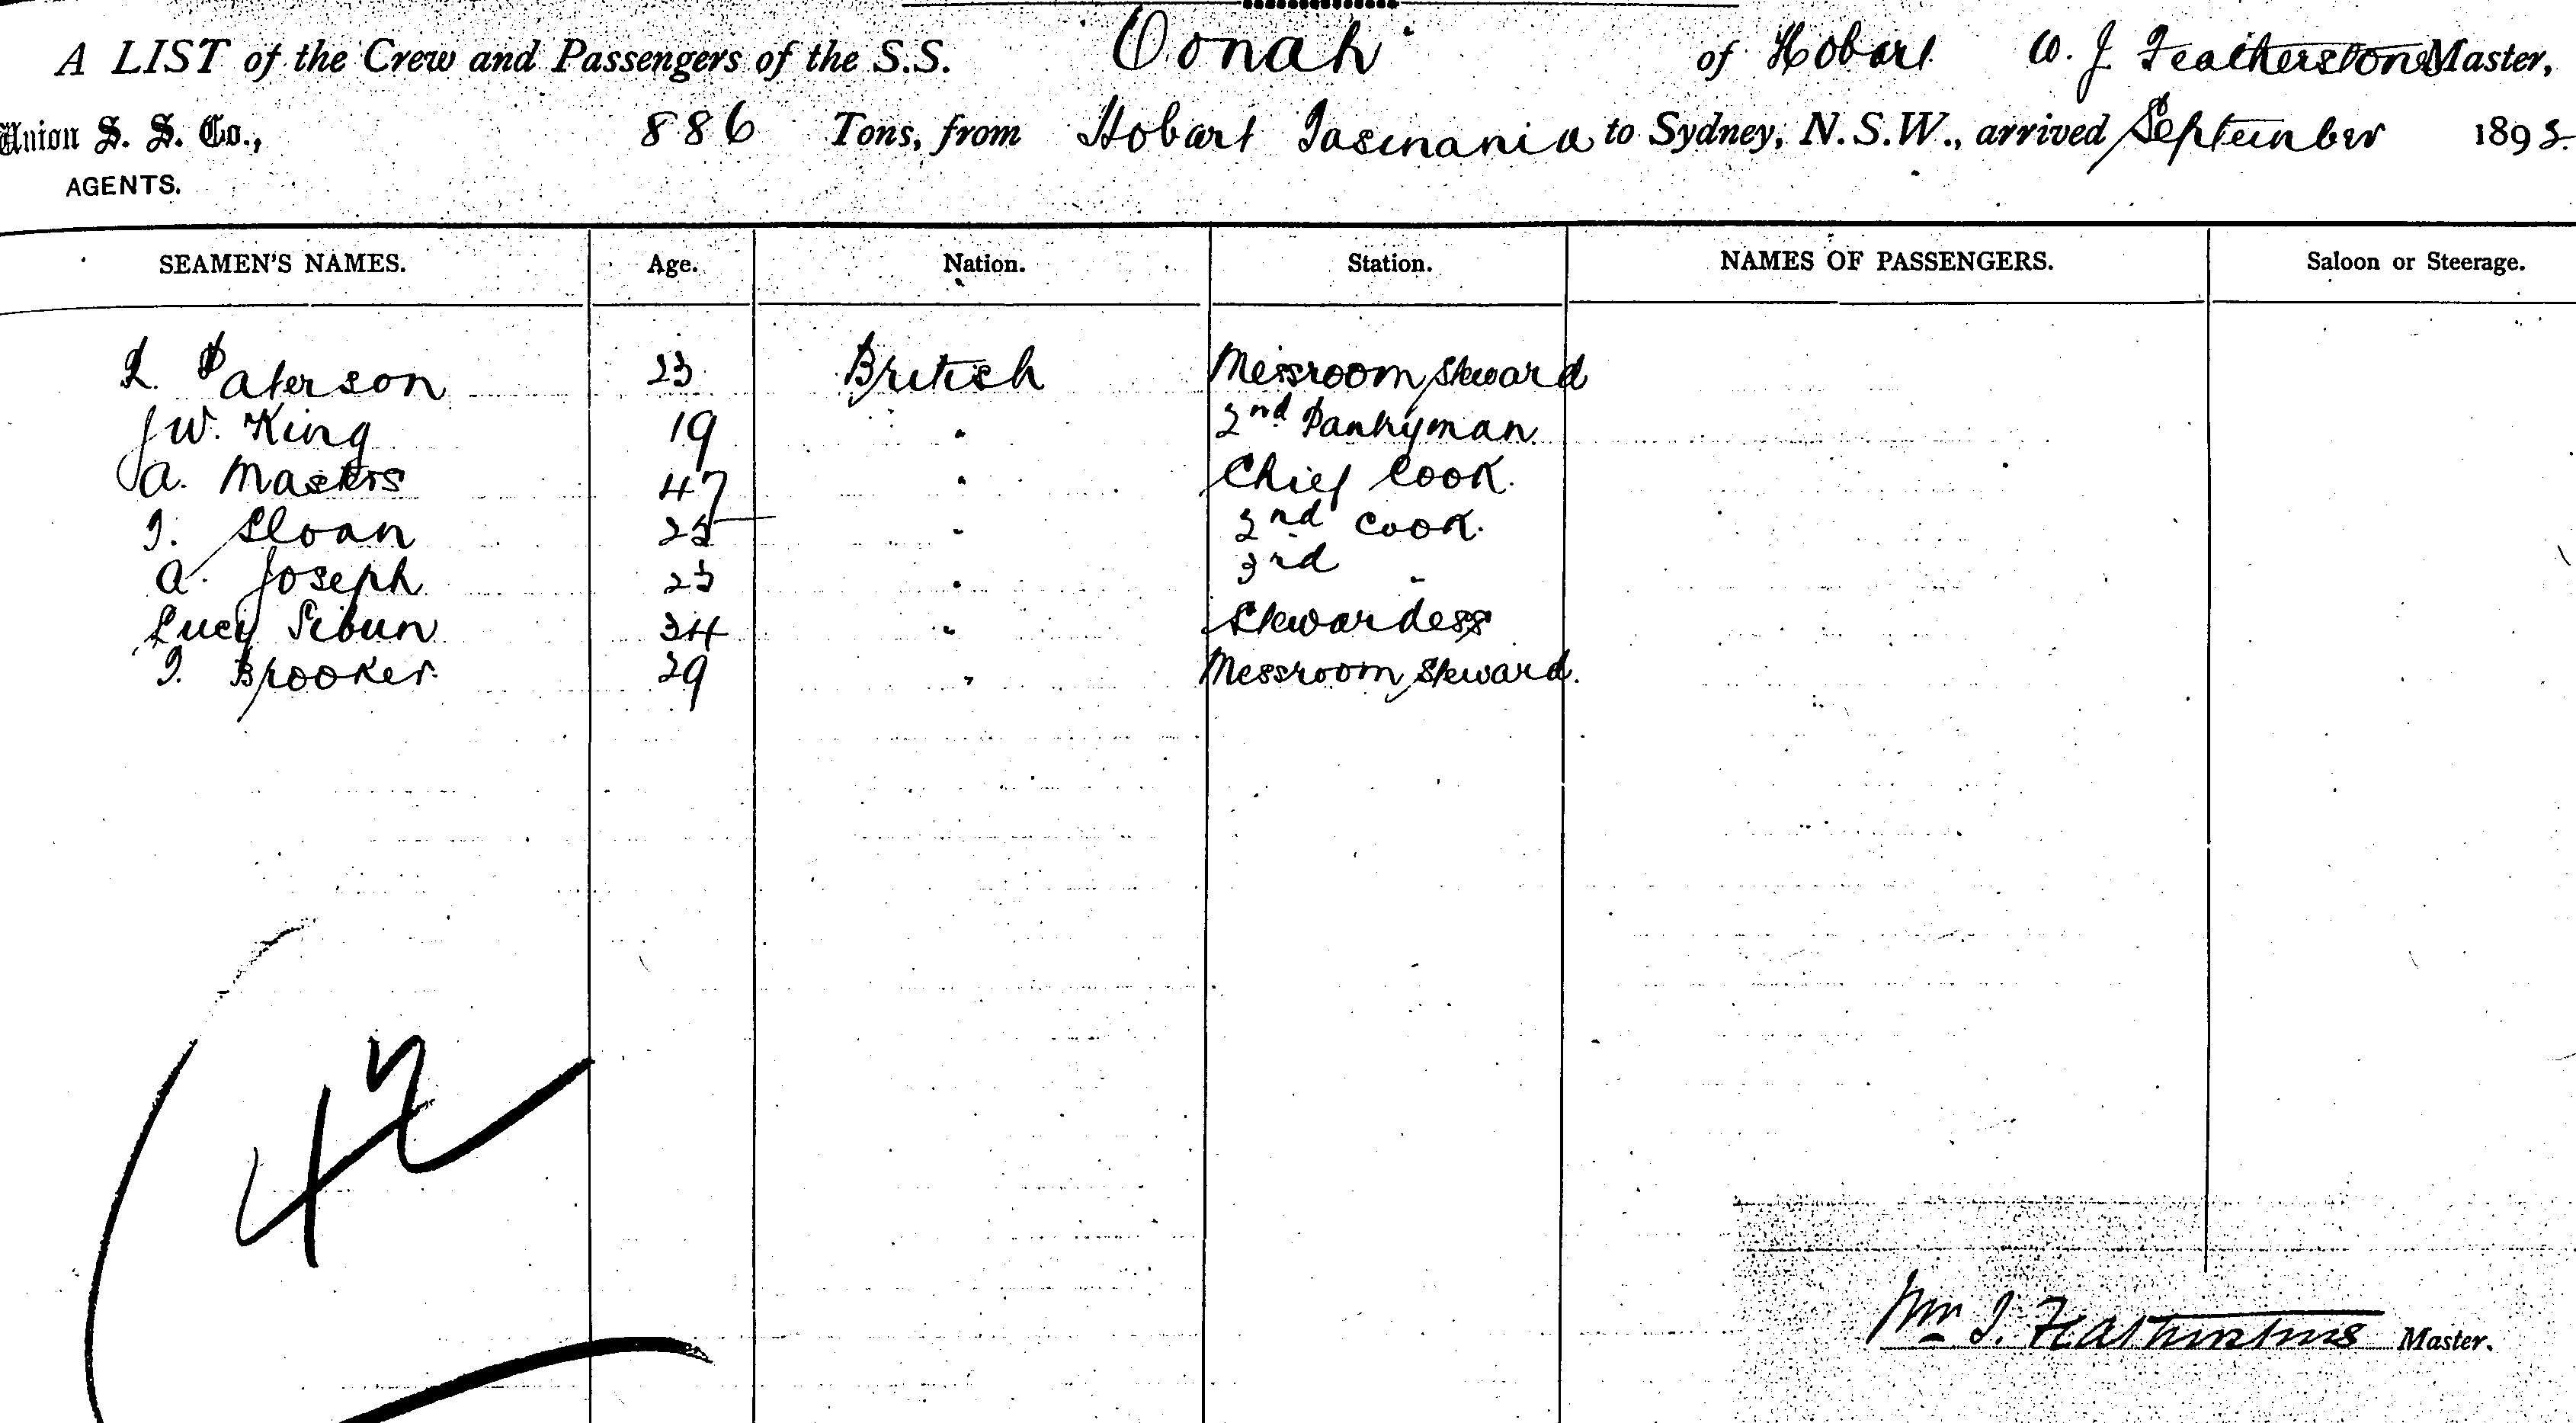 A LIST of the Crew and Passengers of the S.S. Oonah of Hobart W. J. Featherstone Master,
Union S. S. Co., 886 Tons, from Hobart Tasmania to Sydney, N.S.W., arrived September 189
AGENTS.
SEAMEN'S NAMES. Age. Nation. Station. NAMES OF PASSENGERS. Saloon or Steerage.
Paterson 23 British Messroom Steward
J W. King 19 " 2nd Pantryman
A. Masters 47 " Chief Cook.
Sloan 25 " 2nd Cook.
A. Joseph 23 " 3rd "
Lucy Sibun 34 " Stewardess
Brooker 29 " Messroom Steward.
42
Wm J. Featherstone Master.